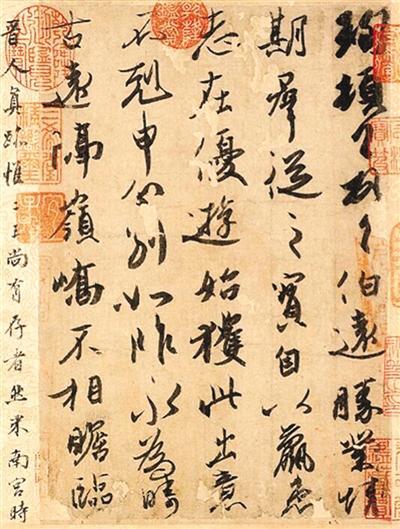 珣頓首頓首伯遠勝業情
期羣從之寶自以羸患
志在優遊始獲此出意
不剋申分別如昨永為疇
古遠隔嶺嶠不相瞻臨
晉人真跡惟二王尚有存者然米南宮時